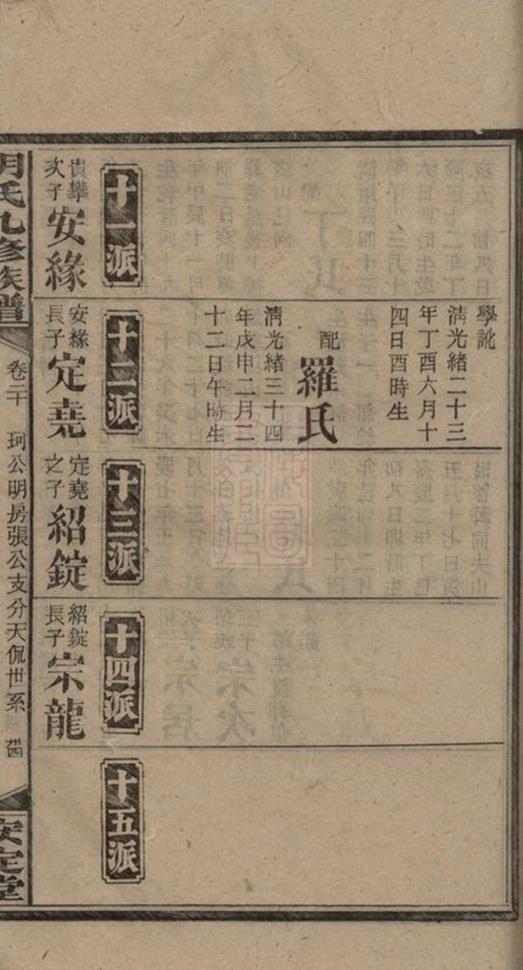 十一派
貴攀
次子
安緣
學訛
清光緒二十三
年丁酉六月十
四日酉時生
配羅氏
清光緒三十四
年戊申二月二
十二日午時生
十二派
安緣
長子
定堯
十三派
定堯
之子
紹錠
十四派
紹錠
長子
宗龍
十五派
胡氏九修族譜
卷二十
珂公明房張公支分天侃世系
安定堂